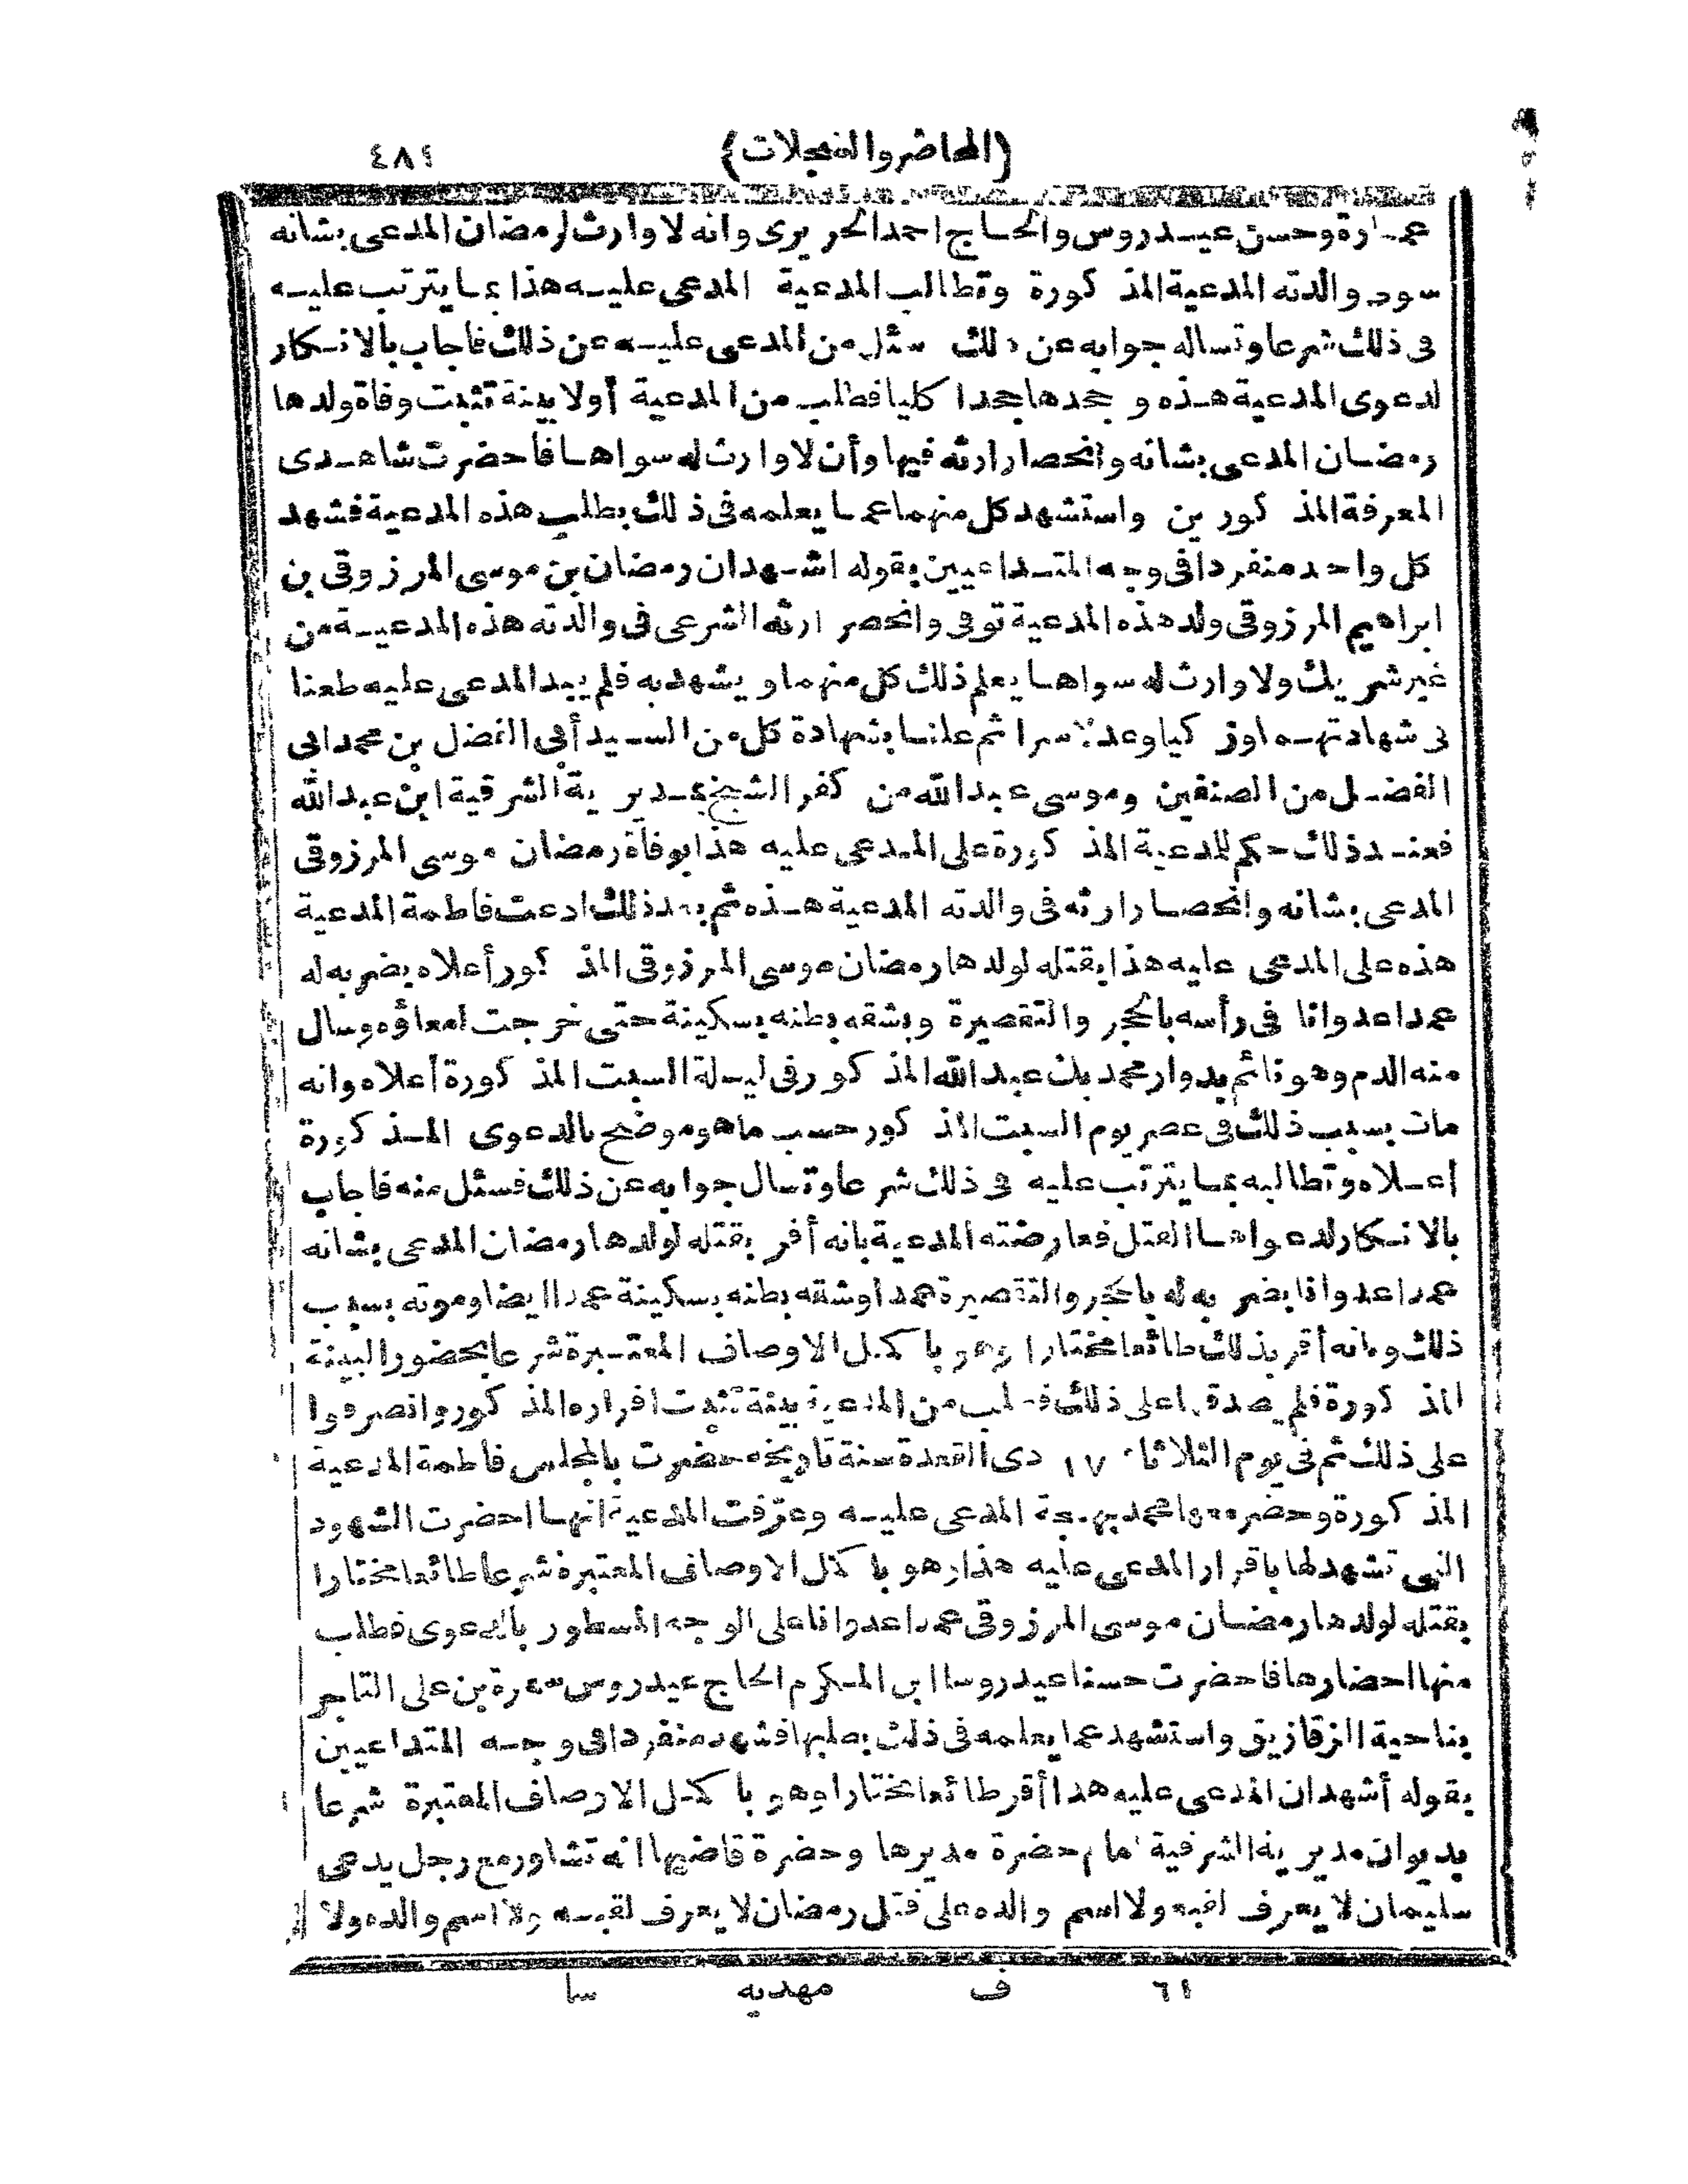 (المحاضر والسجلات) ٤٨١
عمارة وحسن عيدروس والحاج احمد الحريرى وانه لا وارث لرمضان المدعى بشانه
سوى والدته المدعية المذكورة وتطالب المدعية المدعى عليه هذا بما يترتب عليه
فى ذلك شرعا وتساله جوابه عن ذلك سئل من المدعى عليه عن ذلك فاجاب بالانكار
لدعوى المدعية هذه وجحدها جحدا كليا فطلب من المدعية أولا بينة تثبت وفاة ولدها
رمضان المدعى بشانه وانحصار ارثه فيها وأن لا وارث له سواها فأحضرت شاهدى
المعرفة المذكورين واستشهد كل منهما عما يعلمه فى ذلك بطلب هذه المدعية فشهد
كل واحد منفردا فى وجه المتداعيين بقوله اشهد ان رمضان بن موسى المرزوقى بن
ابراهيم المرزوقى ولد هذه المدعية توفى وانحصر ارثه الشرعى فى والدته هذه المدعية من
غير شريك ولا وارث له سواها يعلم ذلك كل منهما ويشهد به فلم يبد المدعى عليه طعنا
فى شهادتهما وزكيا وعدلا سرا ثم علنا بشهادة كل من السيد أبى الفضل بن محمد ابى
الفضل من الصنفين وموسى عبد الله من كفر الشيخ بمديرية الشرقية ابن عبد الله
فعند ذلك حكم للمدعية المذكورة على المدعى عليه هذا بوفاة رمضان موسى المرزوقى
المدعى بشانه وانحصار ارثه فى والدته المدعية هذه ثم بعد ذلك ادعت فاطمة المدعية
هذه على المدعى عليه هذا بقتله لولدها رمضان موسى المرزوقى المذكور أعلاه بضربه له
عمدا عدوانا فى رأسه بالحجر والتقصيرة وبشقه بطنه بسكينة حتى خرجت امعاؤه وسال
منه الدم وهو نائم بدوار محمد بك عبد الله المذكور فى ليلة السبت المذكورة أعلاه وانه
مات بسبب ذلك فى عصر يوم السبت المذكور حسب ما هو موضح بالدعوى المذكورة
اعلاه وتطالبه بما يترتب عليه فى ذلك شرعا وتسال جوابه عن ذلك فسئل منه فاجاب
بالانكار لدعواها القتل فعارضته المدعية بانه أقر بقتله لولدها رمضان المدعى بشانه
عمدا عدوانا بضربه له بالحجر والتقصيرة عمدا وشقه بطنه بسكينة عمدا ايضا وموته بسبب
ذلك وبانه أقر بذلك طائعا مختارا وهو باكمل الاوصاف المعتبرة شرعا بحضور البينة
المذكورة فلم يصدقها على ذلك فطلب من المدعية بينة تثبت اقراره المذكور وانصرفوا
على ذلك ثم فى يوم الثلاثاء ١٧ ذى القعدة سنة تاريخه حضرت بالمجلس فاطمة المدعية
المذكورة وحضر معها محمد بهجة المدعى عليه وعرّفت المدعية انها احضرت الشهود
التى تشهد لها باقرار المدعى عليه هذا وهو باكمل الاوصاف المعتبرة شرعا طائعا مختارا
بقتله لولدها رمضان موسى المرزوقى عمدا عدوانا على الوجه المسطور بالدعوى فطلب
منها احضارها فاحضرت حسنا عيدروسا ابن المكرم الحاج عيدروس بن على التاجر
بناحية الزقازيق واستشهد عما يعلمه فى ذلك بطلبها فشهد منفردا فى وجه المتداعيين
بقوله أشهد ان المدعى عليه هذا أقر طائعا مختارا وهو باكمل الاوصاف المعتبرة شرعا
بديوان مديرية الشرقية امام حضرة مديرها وحضرة قاضيها انه تشاور مع رجل يدعى
سليمان لا يعرف لقبه ولا اسم والده على قتل رمضان لا يعرف لقبه ولا اسم والده ولا
٦١ ف مهديه سا